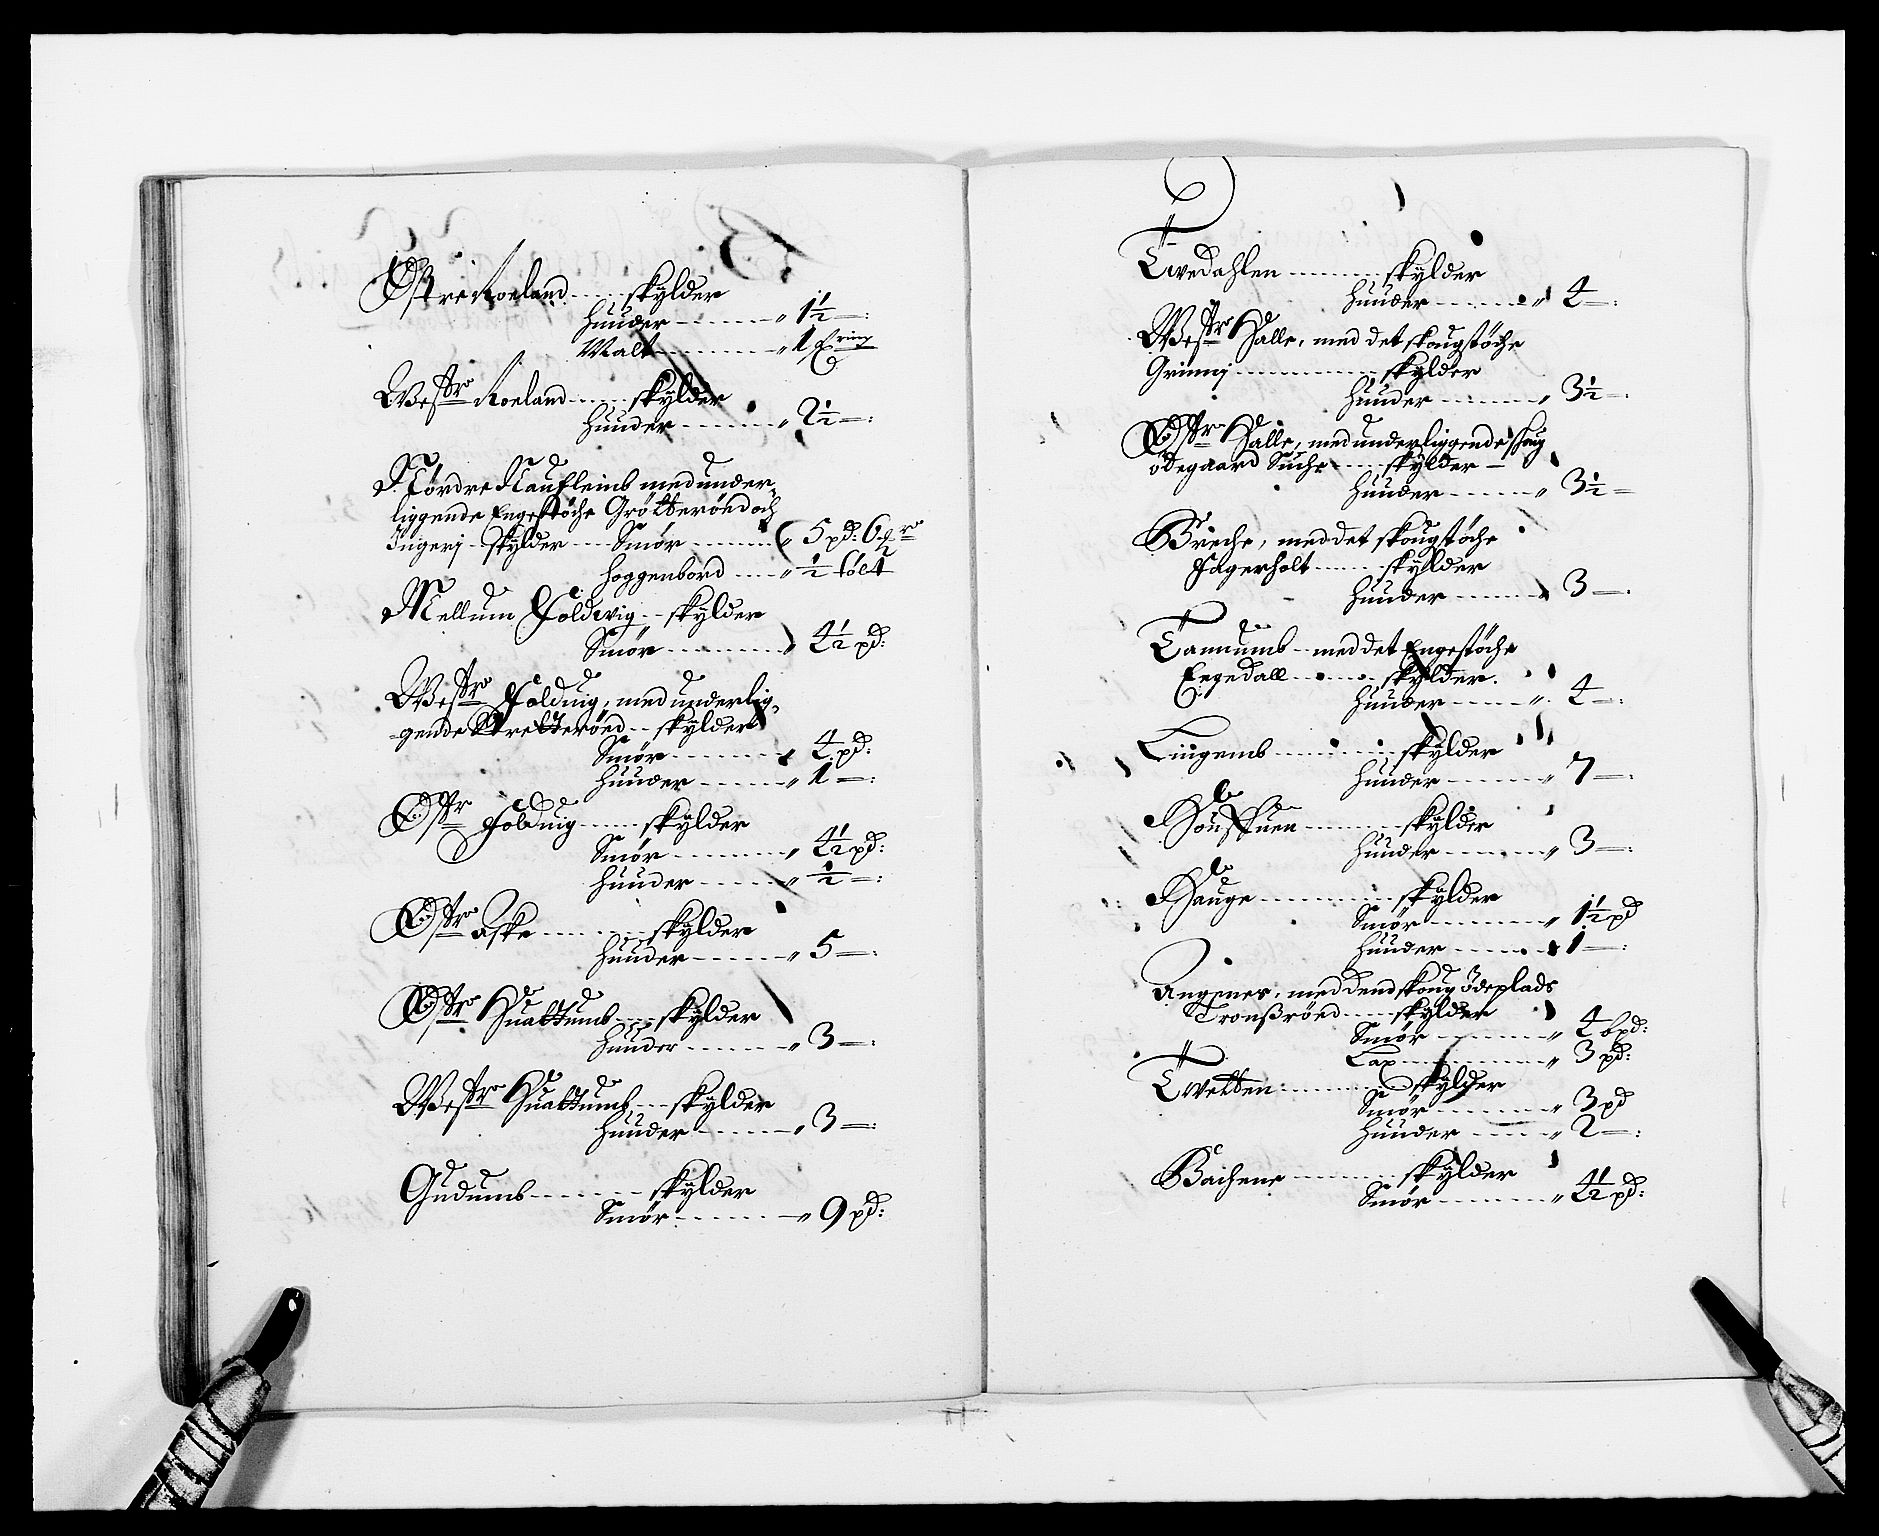 Østre Roeland ...... skylder
huuder ........ „ 1½ –:
Malt ........ „ 1 Ering
Westre Roeland ..... skylder
huuder ........ „ 2½ –:
Nørdre Naufleinb med under-
liggende Engestøche Grötteröed och
Jugerj .. skylder .... Smør ....... „ 5 pd: 6
hoggenbord .... „ ½ tólt
Mellum Foldvig .. skylder
Smør ........ „ 4½ pd:
Westre Foldvig, med underlig-
gende Bretteröed .. skylder
Smør ........ „ 4 pd:
huuder ...... „ 1 –:
Østre Foldvig ..... skylder
Smør ........ „ 4½ pd:
huuder ...... „ ½ –:
Østre Aske ........ skylder
huuder ...... „ 5 –:
Østre Huattumb ... skylder
huuder ....... „ 3 –:
Westre Huattumb ... skylder
huuder ....... „ 3 –:
Gudumb ........ skylder
Smør ........ „ 9 pd:
Twedahlen ........ skylder
huuder ....... „ 4 –:
Westre Halle, med det skougstøche
Grimmj ............ skylder
huuder ....... „ 3½ –.
Østre Halle, med underliggende skoug
ødegaard Suche ..... skylder –
huuder ...... „ 3½ –
Breche, med det skougstøche
Fagerholt ...... skylder
huuder ....... „ 3 –.
Tannumb .. med det Engestøche
Engedall ....... skylder.
huuder ...... „ 4 –:
Lingemb .......... skylder
huuder ....... „ 7 –:
........ skylder
huuder ....... „ 3 –:
Hauge .......... skylder
Smør ........ „ 1½ pd
huuder ....... „ 1 –:
Angenes, med dend skoug ödeplads
Tronßröed ..... skylder
Smør ........ „ 4 bpd:
Lax ........... „ 3 pd:
Twetten .......... skylder
Smør ......... „ 3 pd
huuder ...... „ 2 –:
Bachene ......... skylder
Smør ......... „ 4½ pd: